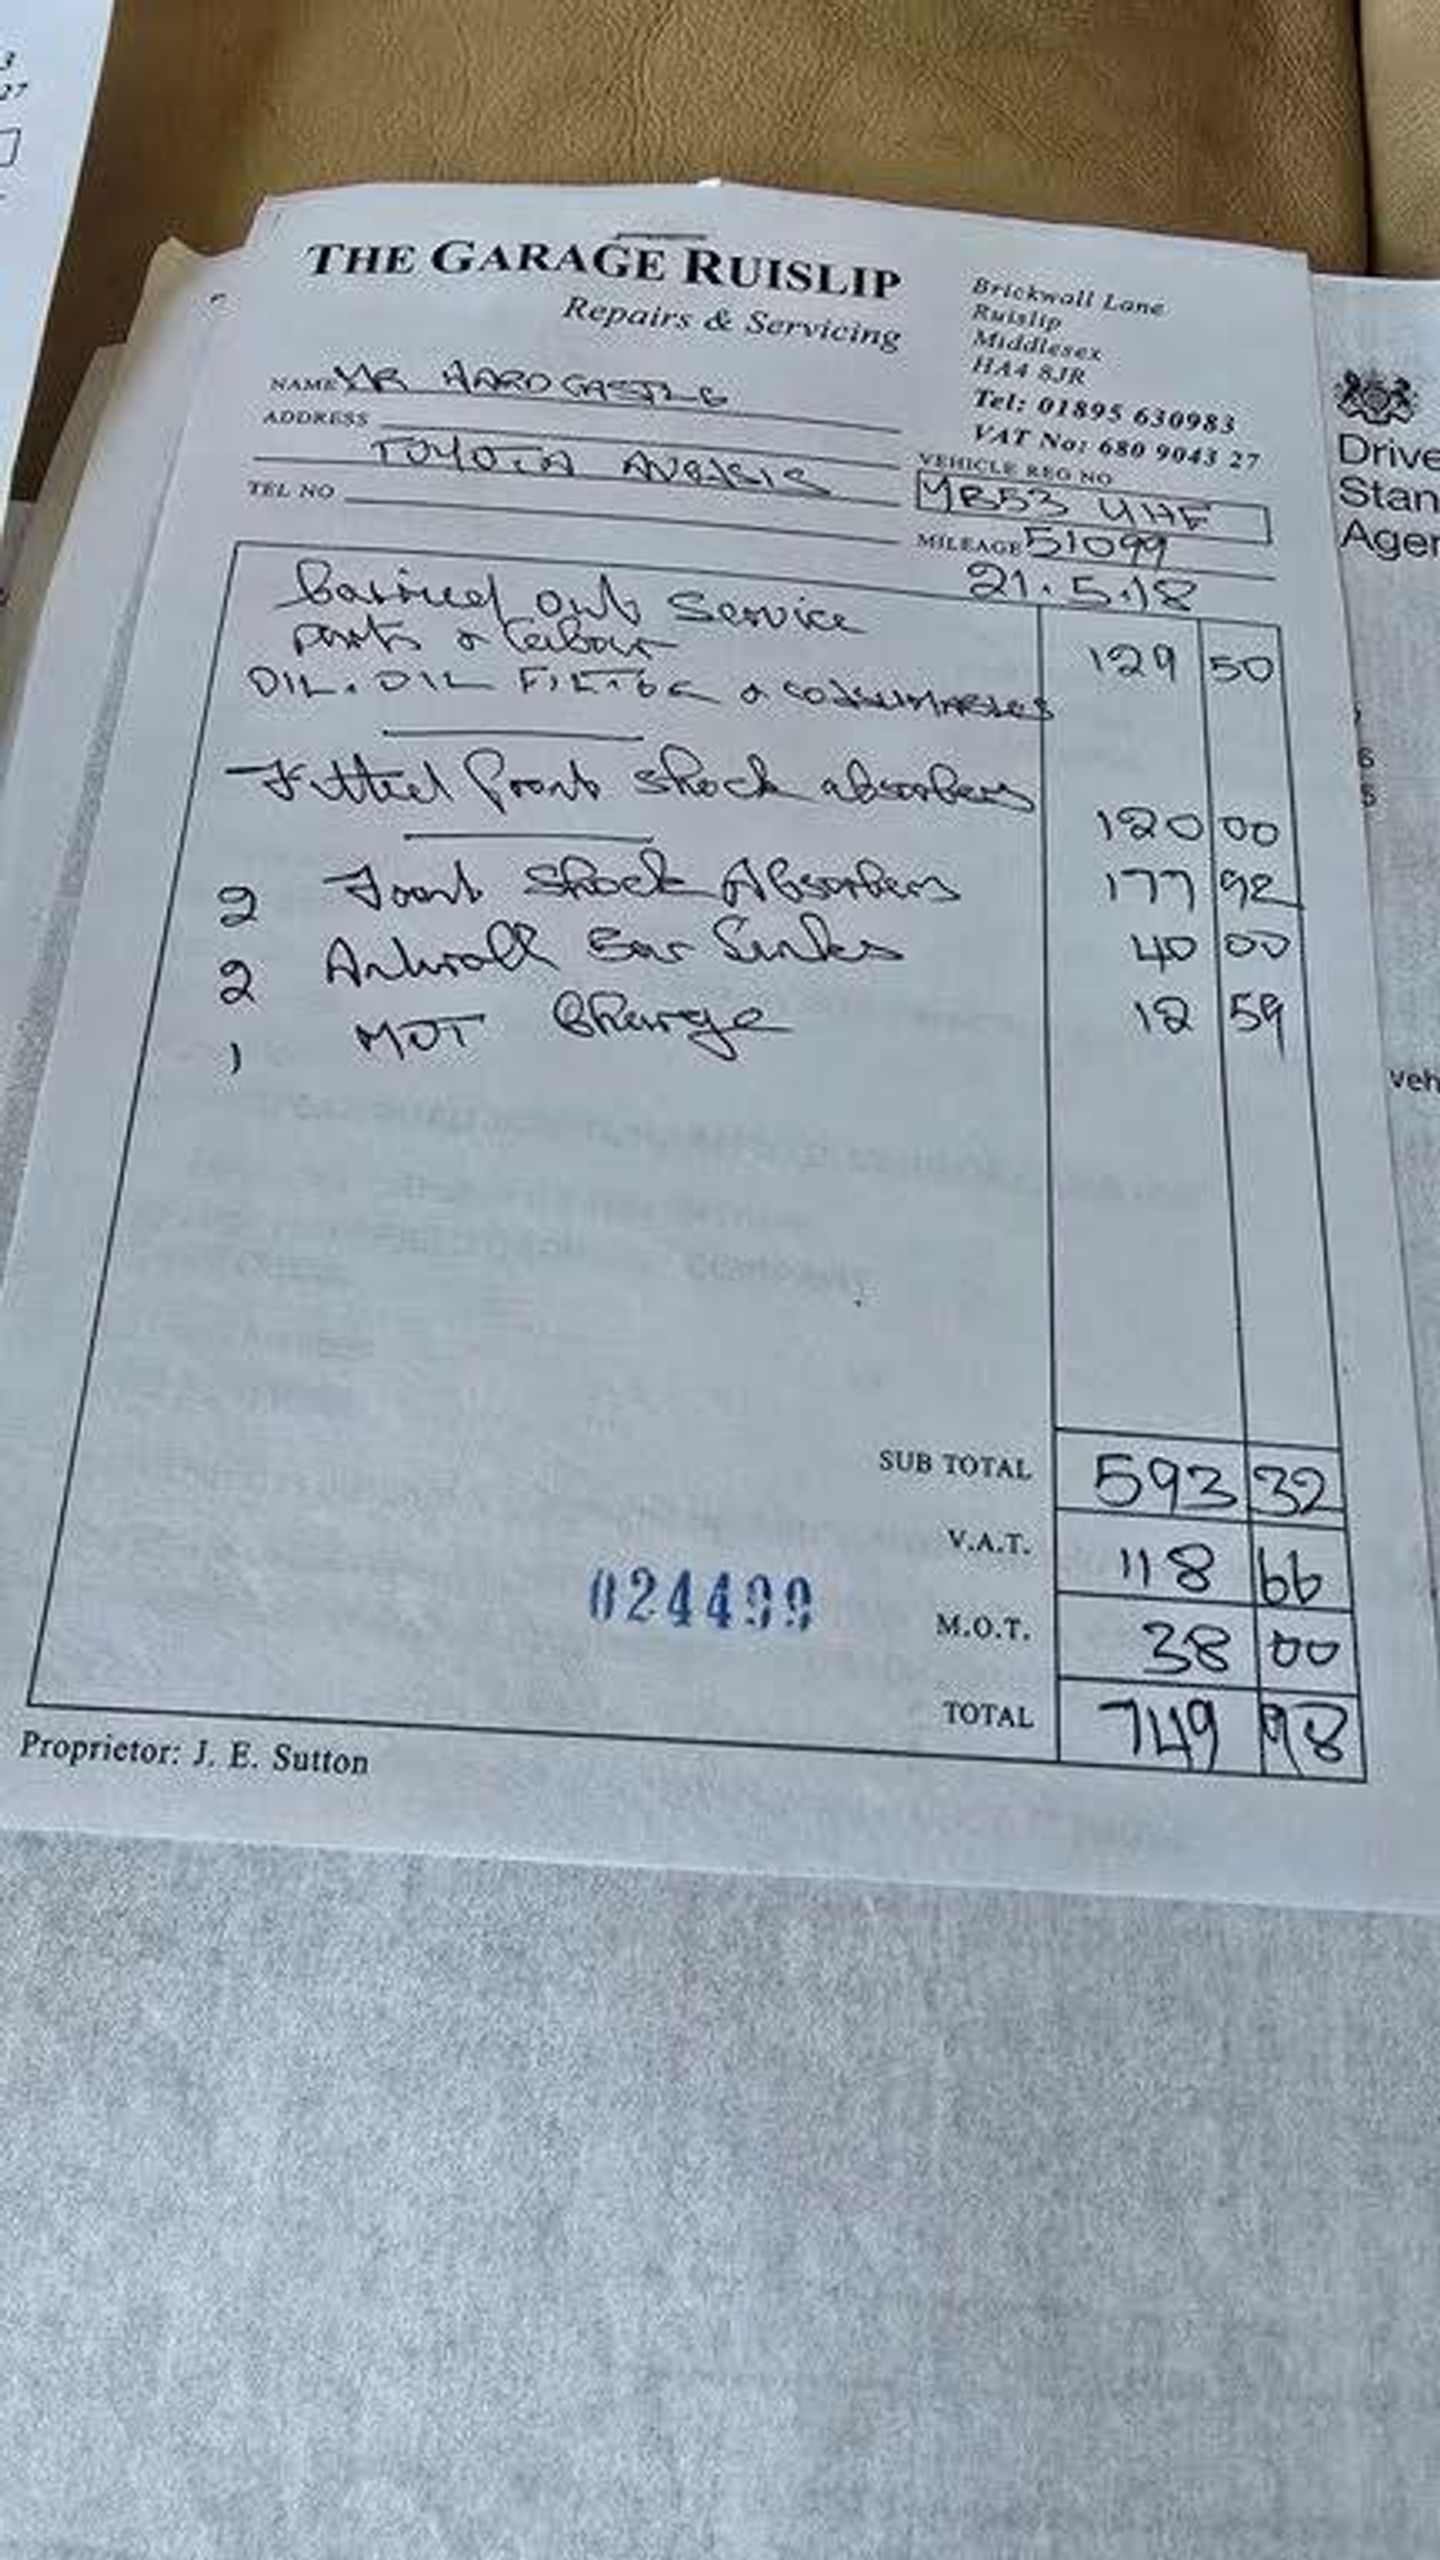 3
27
THE GARAGE RUISLIP
Repairs & Servicing
Brickwall Lane
Ruislip
Middlesex
HA4 8JR
Tel: 01895 630983
VAT No: 680 9043 27
NAME MR HARDCASTLE
ADDRESS
TOYOTA AVENSIS
TEL NO
VEHICLE REG NO
YB53 UHF
MILEAGE 51099
21.5.18
Carried out Service
parts & labour 129 50
OIL. OIL FILTER & CONSUMABLES
Fitted front shock absorbers 120 00
2 Front Shock Absorbers 177 92
2 Antiroll Bar Links 40 00
1 MOT Charge 12 59
SUB TOTAL 593 32
V.A.T. 118 66
024499
M.O.T. 38 00
TOTAL 749 98
Proprietor: J. E. Sutton
Drive
Stan
Agen
6
veh